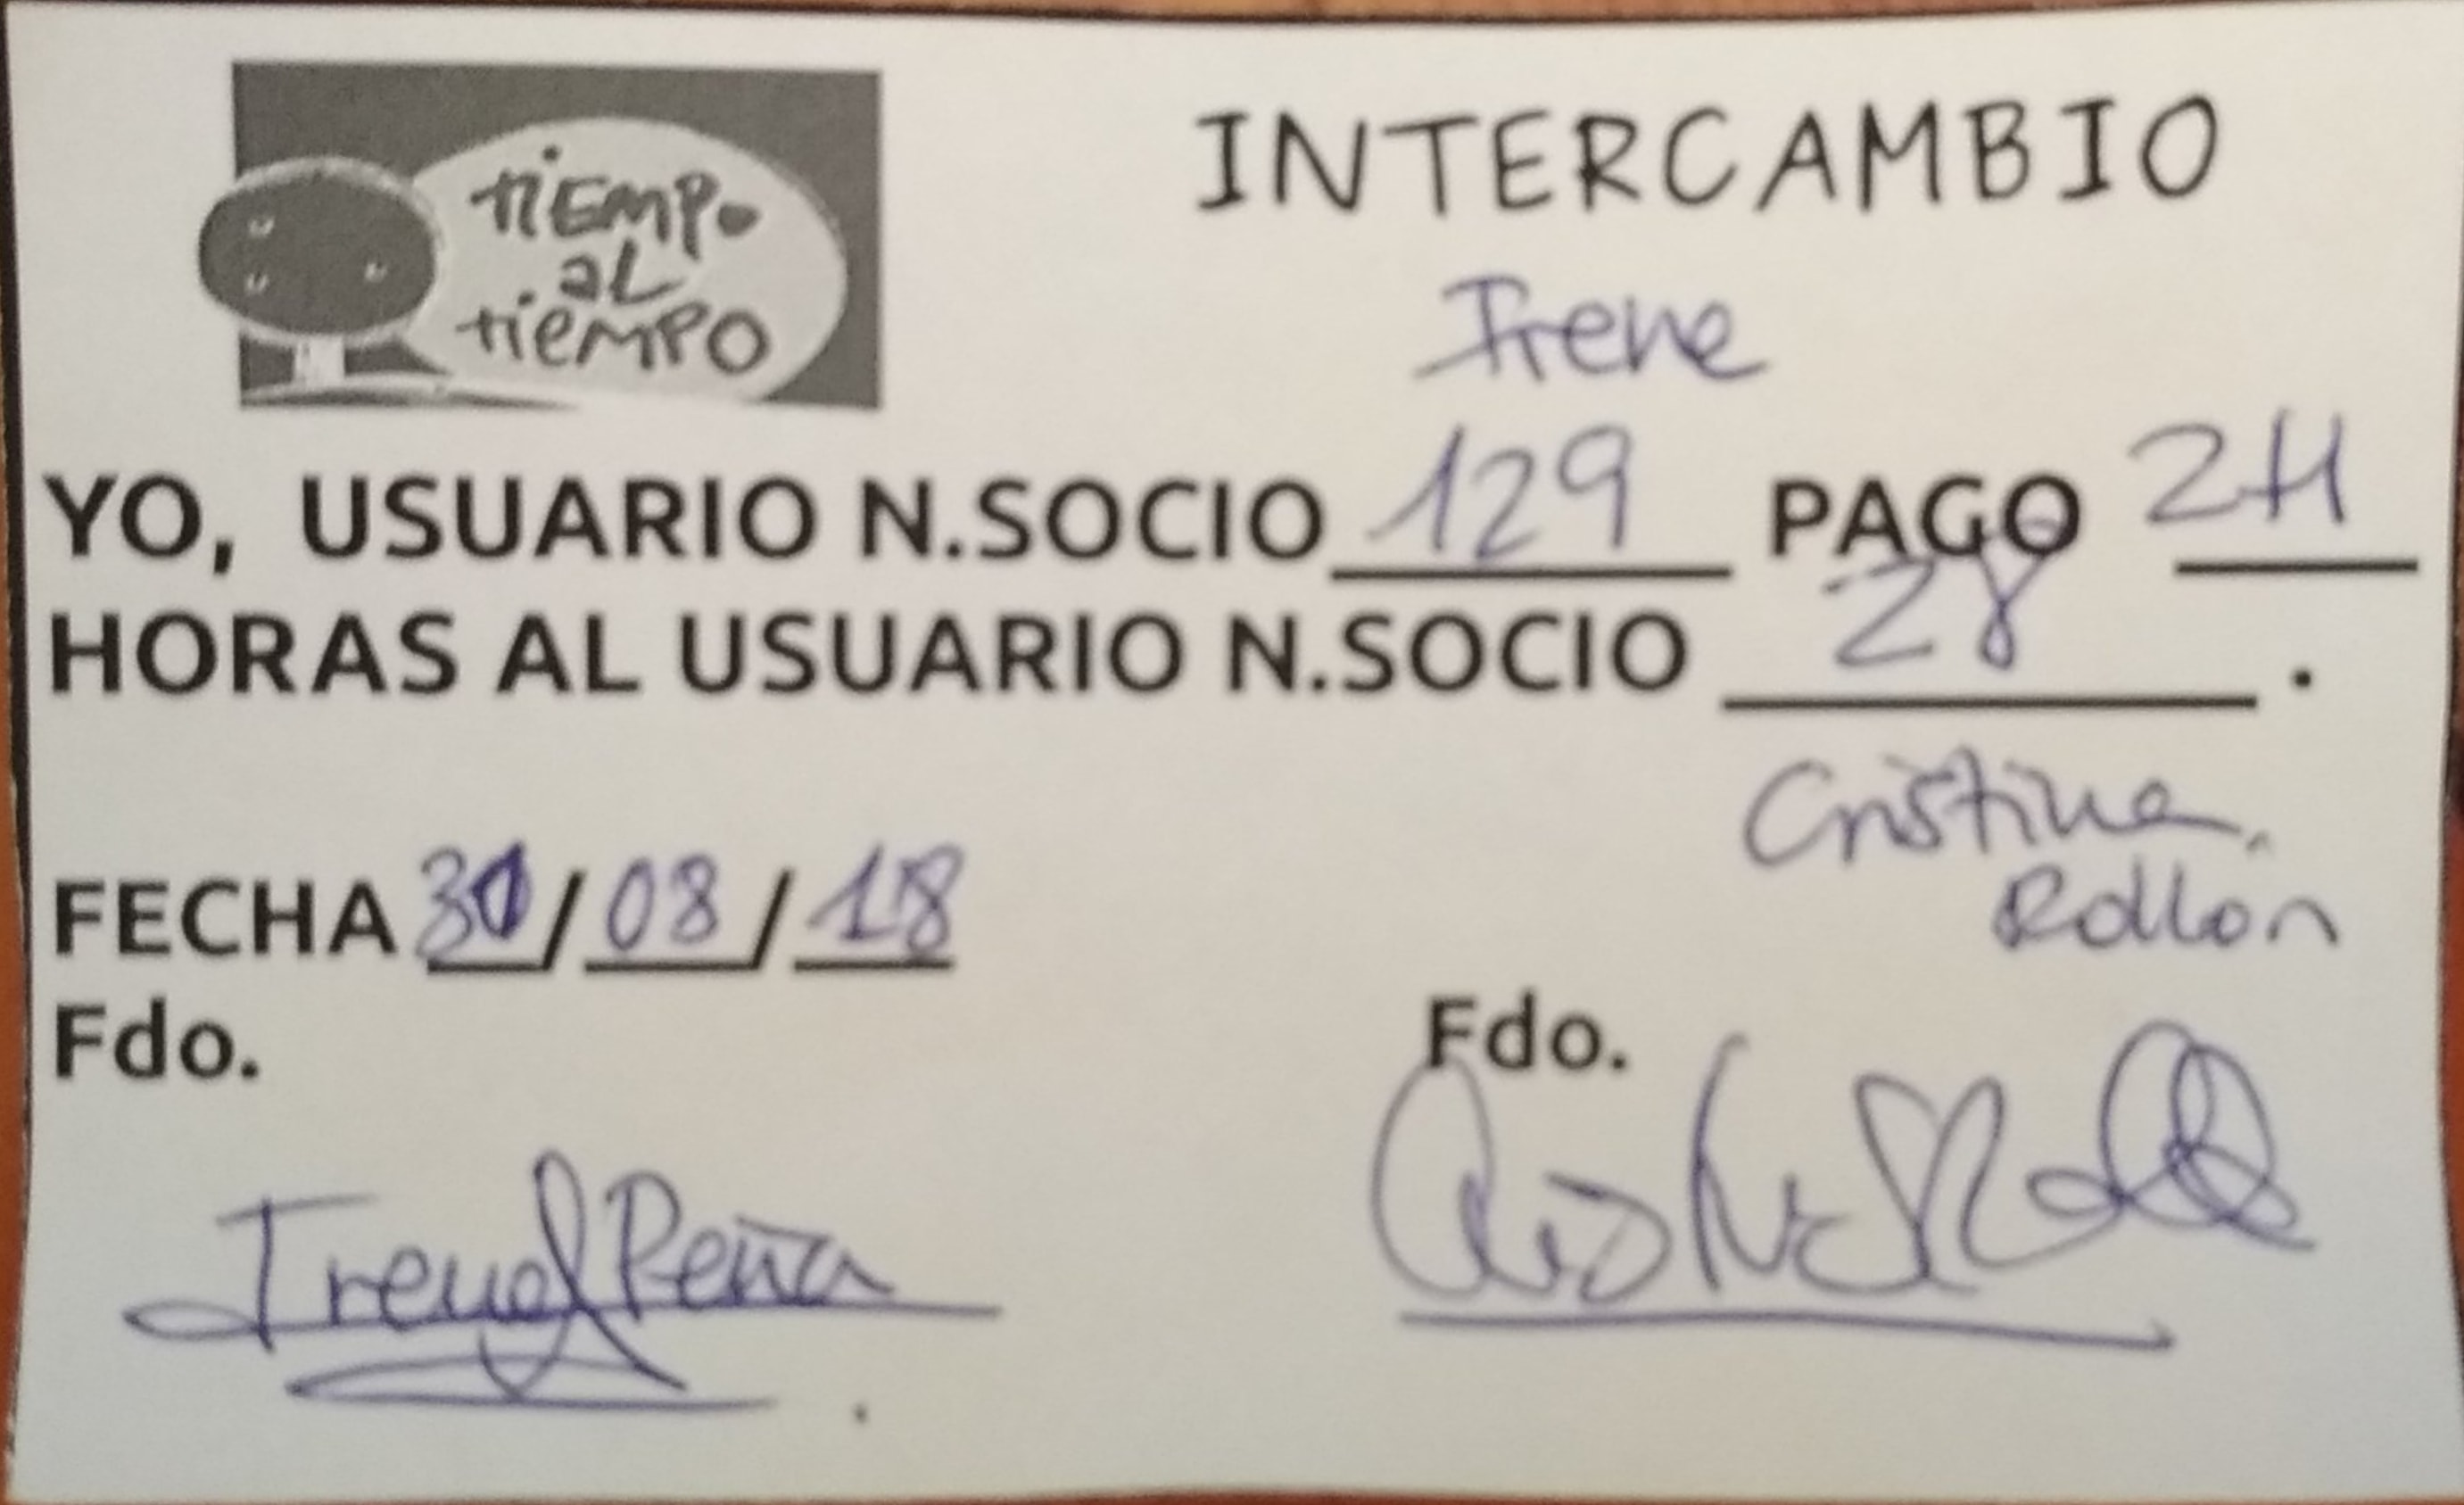 tiempo
al
tiempo
INTERCAMBIO
Irene
YO, USUARIO N.SOCIO 129 PAGO 2H
HORAS AL USUARIO N.SOCIO 28 .
Cristina
Rollón
FECHA / 08 / 18
Fdo. Fdo.
Irene Peña